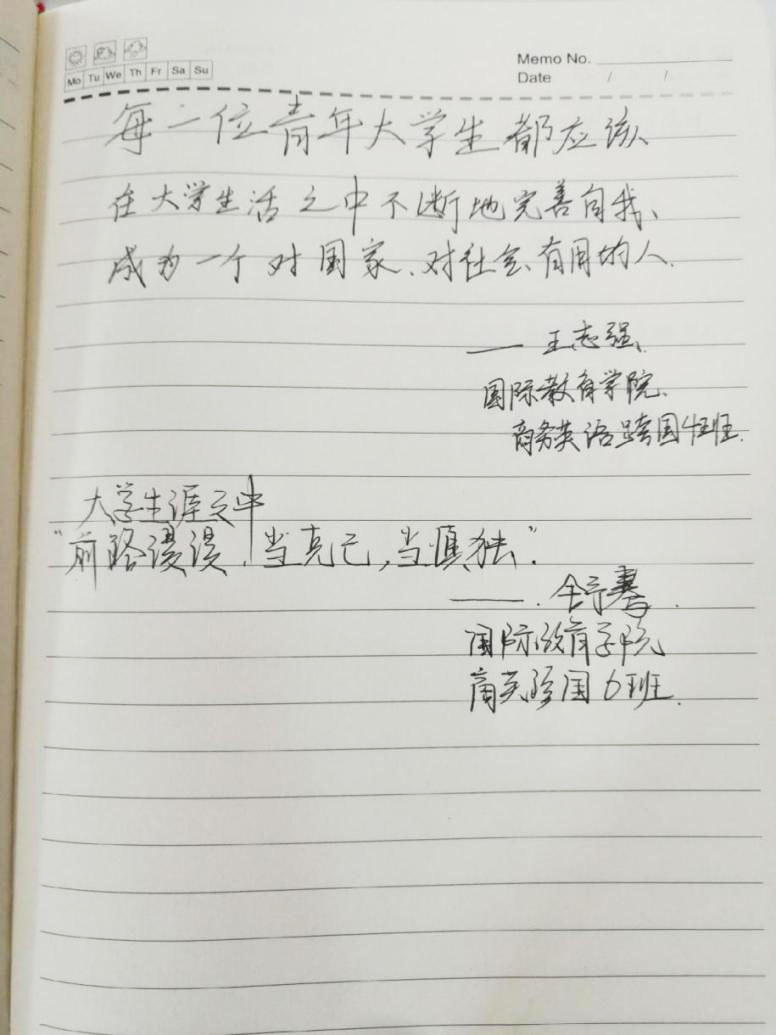 Mo Tu We Th Fr Sa Su
Memo No.
Date / /
每一位青年大学生都应该、
在大学生活之中不断地完善自我、
成为一个对国家、对社会有用的人.
—— 王志强、
国际教育学院、
商务英语跨国4班班.
大学生涯之中
“前路漫漫,当克己,当慎独”.
——.
国际教育学院
商英跨国6班.